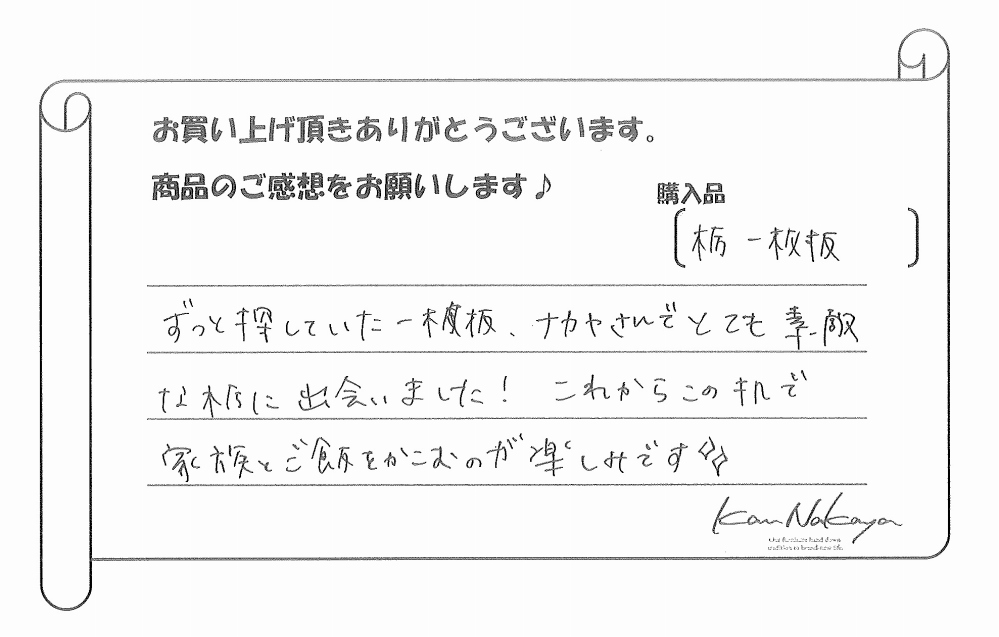 お買い上げ頂きありがとうございます。
商品のご感想をお願いします♪
購入品
栃 一枚板
ずっと探していた一枚板、ナカヤさんでとても素敵
な栃に出会いました! これからこの机で
家族とご飯をかこむのが楽しみです✨
Kan Nakaya
Our furniture hand down
tradition to brand-new life.